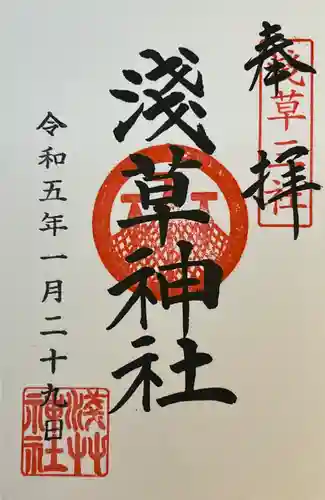 奉拝
浅草一之社
淺草神社
令和五年一月二十九日
淺艸神社